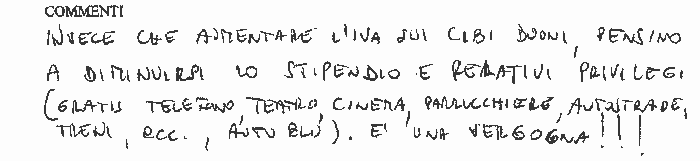 COMMENTI
INVECE CHE AUMENTARE L'IVA SUI CIBI BUONI, PENSINO
A DIMINUIRSI LO STIPENDIO E RELATIVI PRIVILEGI
(GRATIS TELEFONO, TEATRO, CINEMA, PARRUCCHIERE, AUTOSTRADE,
TRENI, ECC., AUTO BLU). E' UNA VERGOGNA!!!